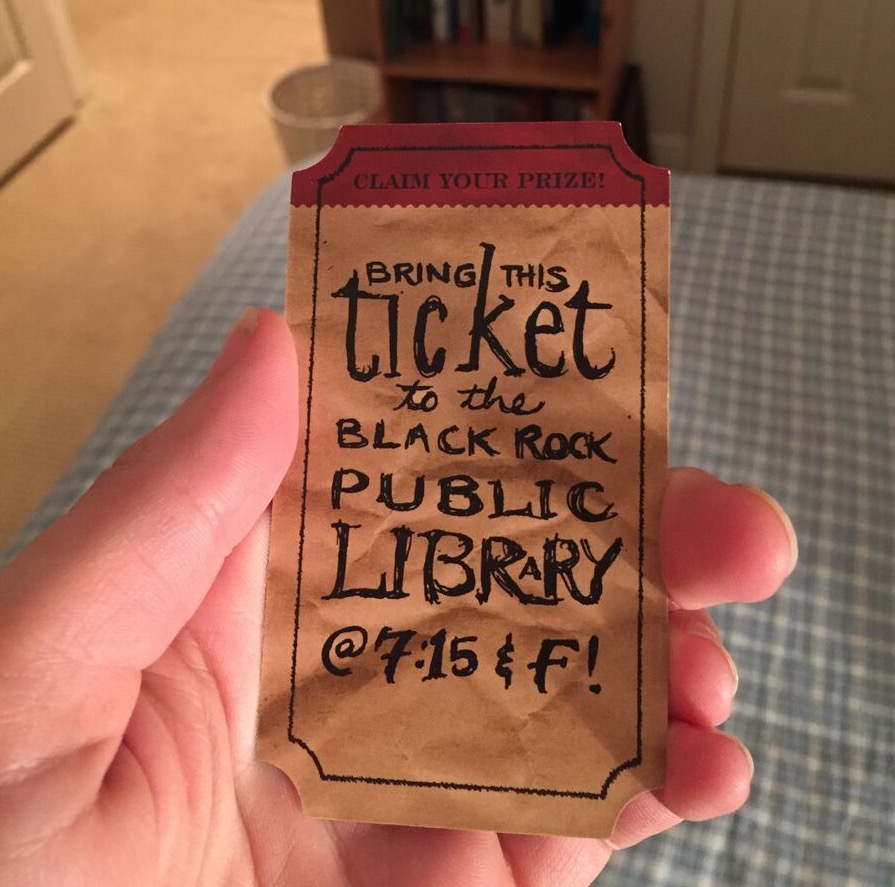 CLAIM YOUR PRIZE!
BRING THIS
ticket
to the
BLACK ROCK
PUBLIC
LIBRARY
@ 7:15 & F!